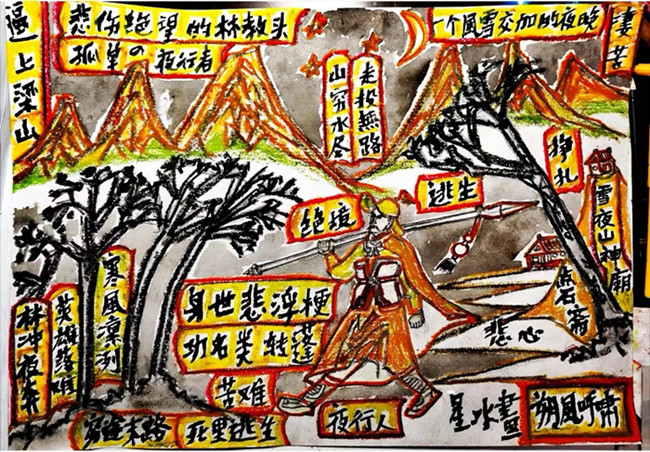 逼上梁山
悲伤绝望的林教头
孤星の夜行者
山穷水尽
走投無路
一个風雪交加的夜晚
淒苦
挣扎
逃生
绝境
雪夜山神廟
寒風凛列
英雄落难
林冲夜奔
身世悲浮梗
功名类转蓬
苦难
悲心
穷途末路
死里逃生
夜行人
星水畫
朔風呼嘯